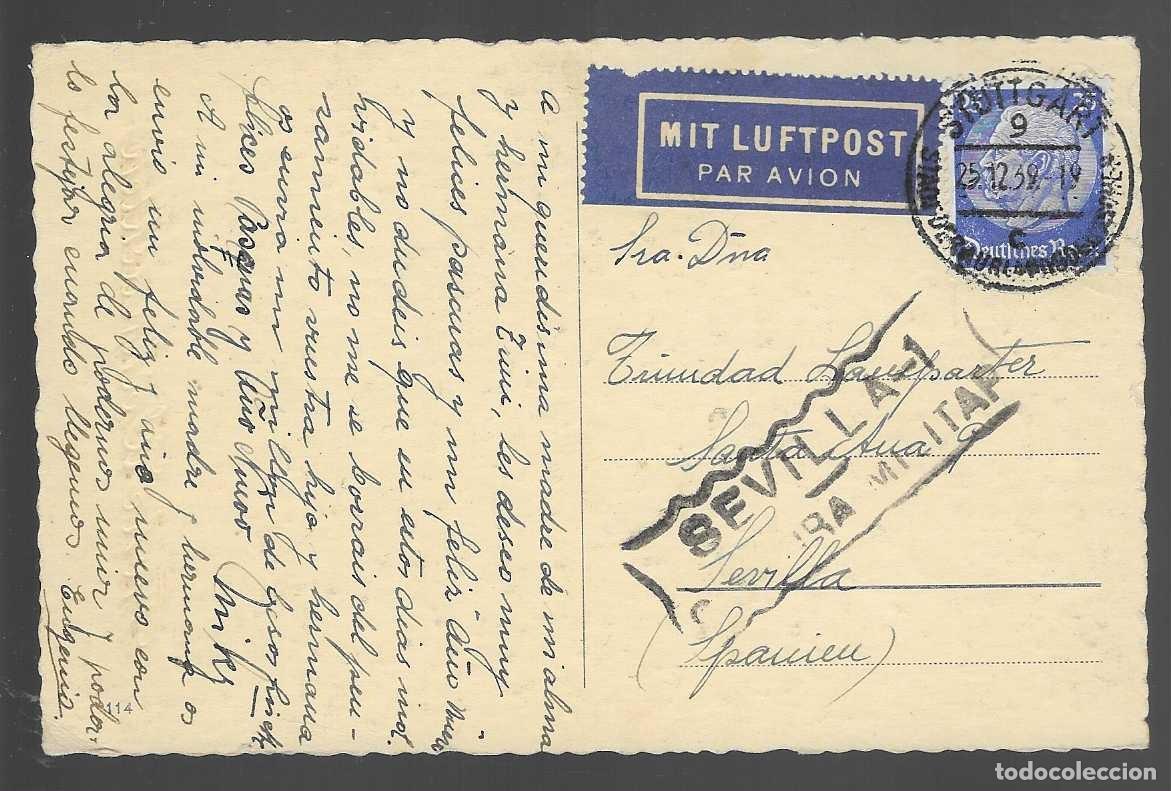 A mi queridisima madre de mi alma
y hermana Trini, les deseo muy
felices pascuas y un feliz Año Nuevo
y no dudeis que en estos dias inol-
vidables, no me se borrais del pen-
samiento vuestra hija y hermana
os envia un millon de besos
felices Pascuas y Año Nuevo
A mi inolvidable madre y hermana os
envio un feliz año nuevo con
la alegria de podernos unir y poder-
lo festejar cuando lleguemos. Eugenio.
114
MIT LUFTPOST
PAR AVION
STUTTGART
9
25.12.39. 19
c
Deutsches Reich
25
Sra. Dña
Trinidad
Santa Ana 9
Sevilla
(Spanien)
SEVILLA-1
CENSURA MILITAR
todocoleccion